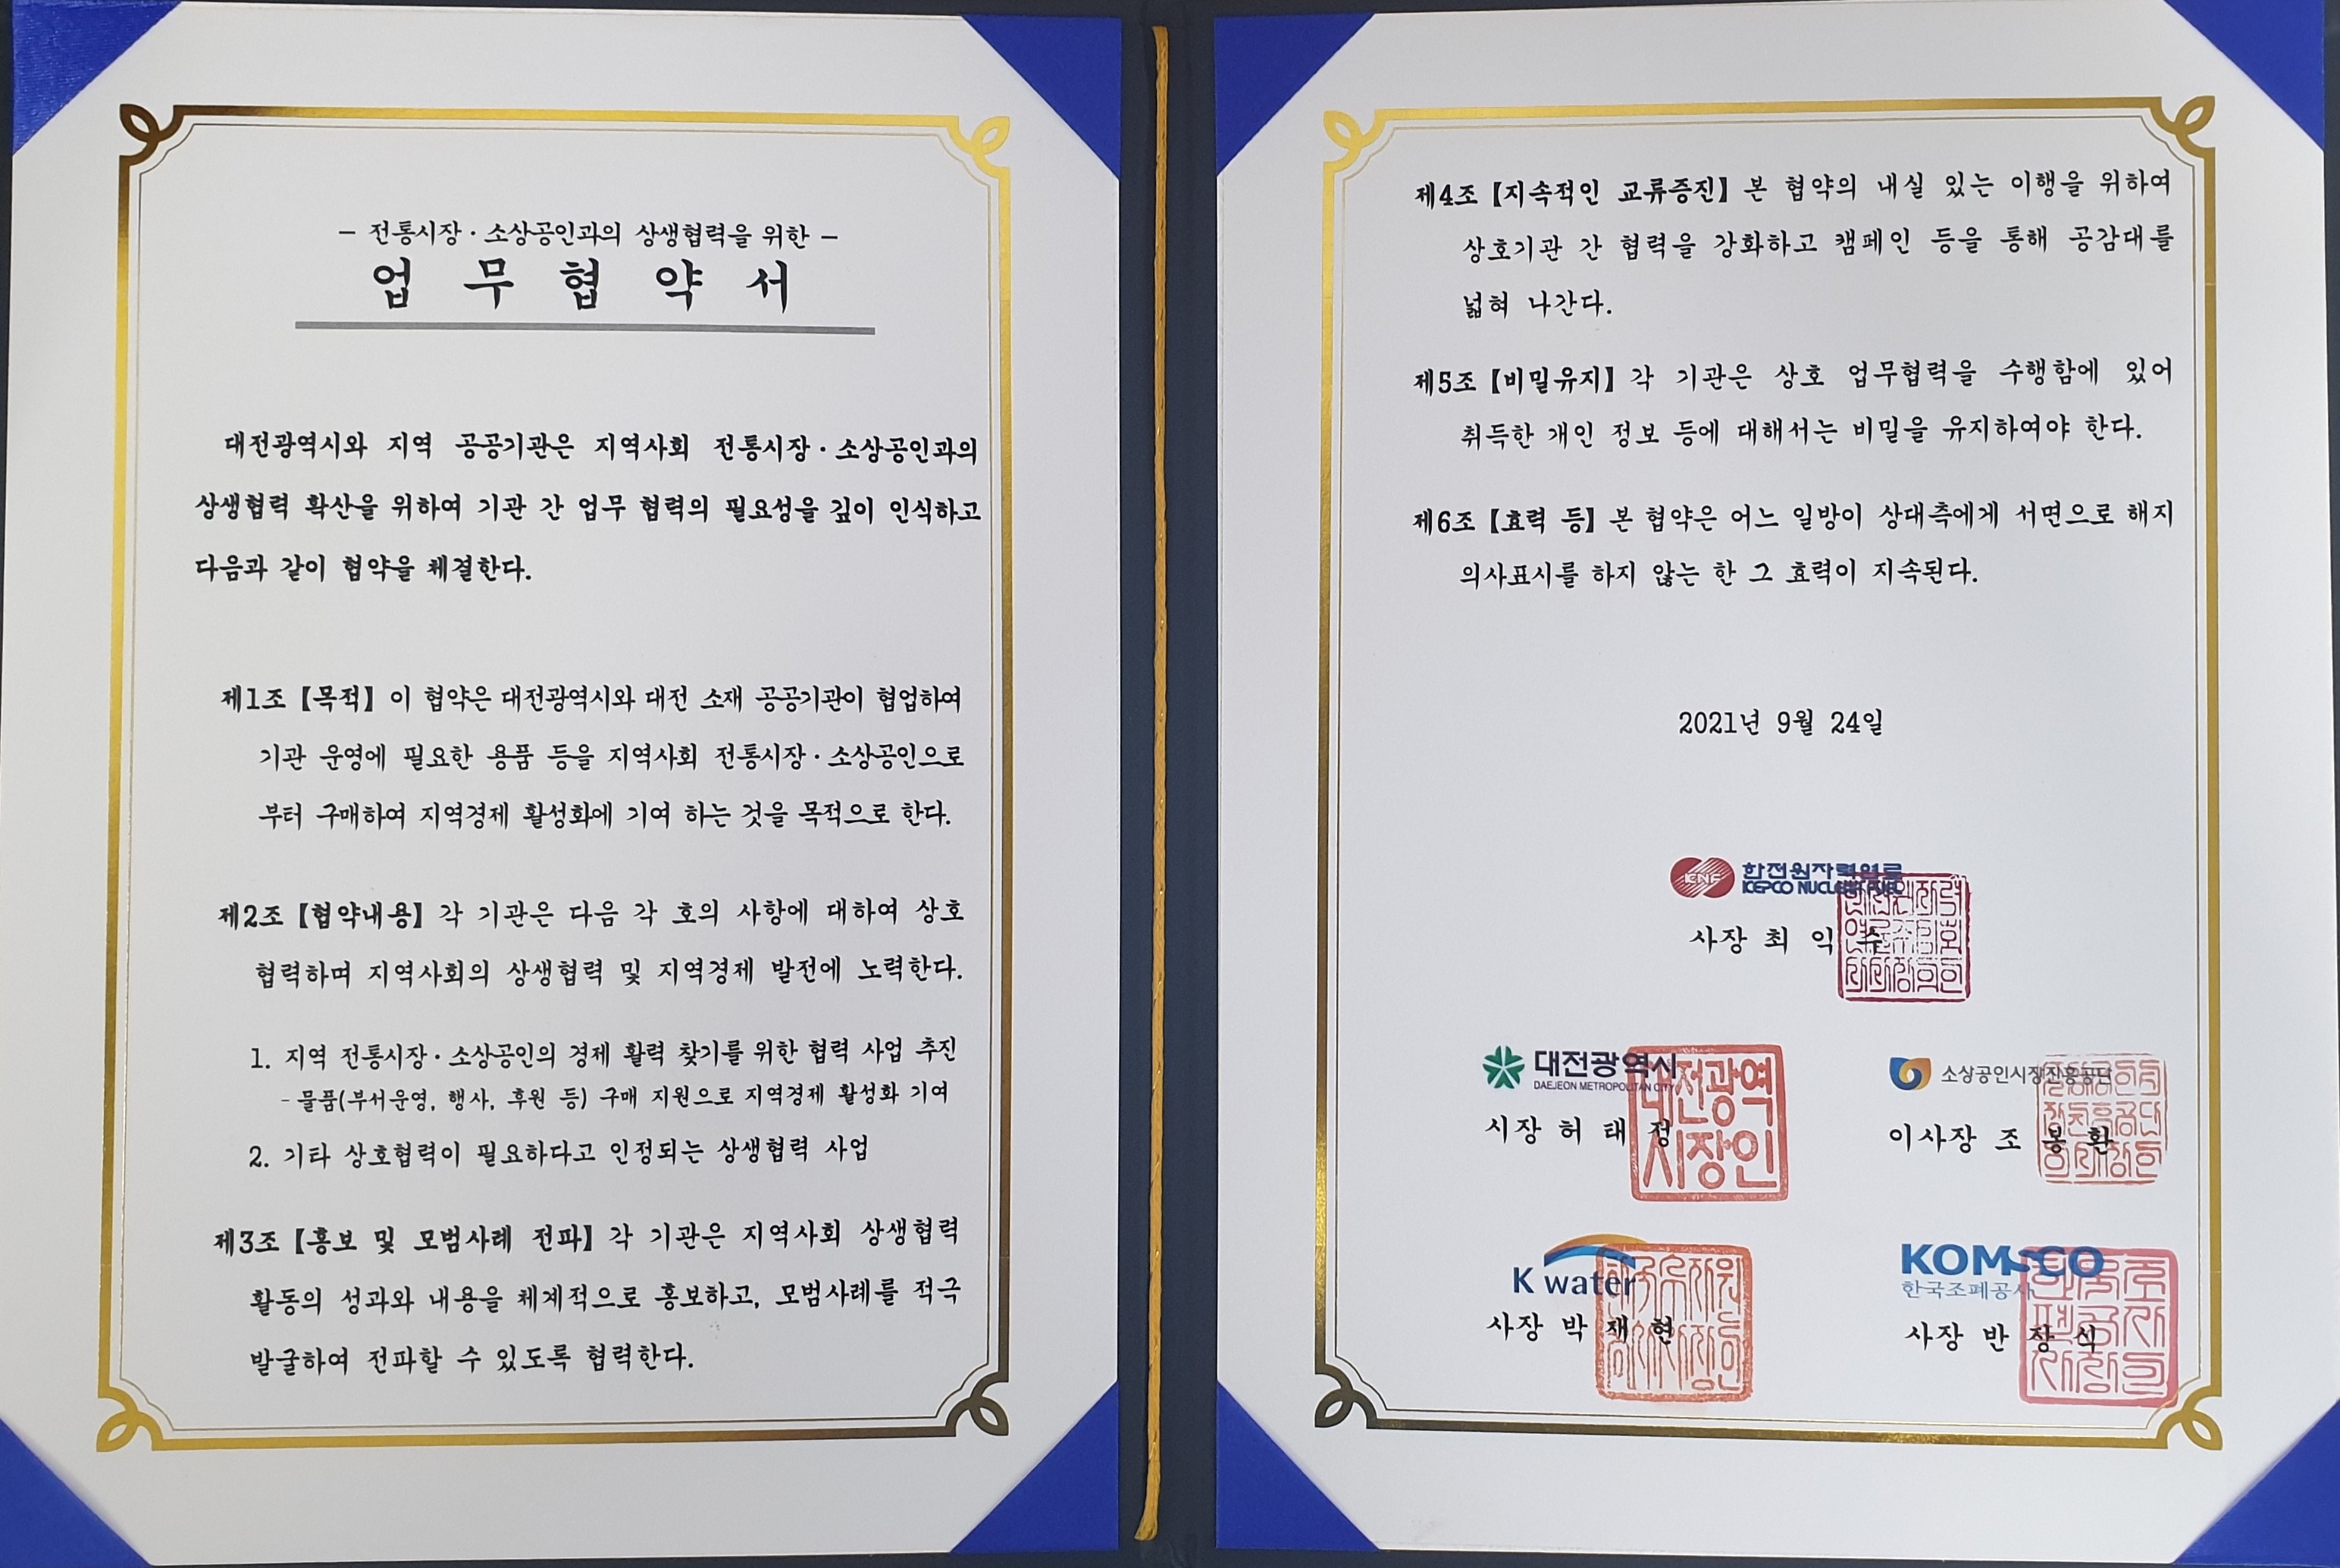 - 전통시장·소상공인과의 상생협력을 위한 -
업 무 협 약 서
대전광역시와 지역 공공기관은 지역사회 전통시장·소상공인과의
상생협력 확산을 위하여 기관 간 업무 협력의 필요성을 깊이 인식하고
다음과 같이 협약을 체결한다.
제1조【목적】이 협약은 대전광역시와 대전 소재 공공기관이 협업하여
기관 운영에 필요한 용품 등을 지역사회 전통시장·소상공인으로
부터 구매하여 지역경제 활성화에 기여 하는 것을 목적으로 한다.
제2조【협약내용】각 기관은 다음 각 호의 사항에 대하여 상호
협력하며 지역사회의 상생협력 및 지역경제 발전에 노력한다.
1. 지역 전통시장·소상공인의 경제 활력 찾기를 위한 협력 사업 추진
- 물품(부서운영, 행사, 후원 등) 구매 지원으로 지역경제 활성화 기여
2. 기타 상호협력이 필요하다고 인정되는 상생협력 사업
제3조【홍보 및 모범사례 전파】각 기관은 지역사회 상생협력
활동의 성과와 내용을 체계적으로 홍보하고, 모범사례를 적극
발굴하여 전파할 수 있도록 협력한다.
제4조【지속적인 교류증진】본 협약의 내실 있는 이행을 위하여
상호기관 간 협력을 강화하고 캠페인 등을 통해 공감대를
넓혀 나간다.
제5조【비밀유지】각 기관은 상호 업무협력을 수행함에 있어
취득한 개인 정보 등에 대해서는 비밀을 유지하여야 한다.
제6조【효력 등】본 협약은 어느 일방이 상대측에게 서면으로 해지
의사표시를 하지 않는 한 그 효력이 지속된다.
2021년 9월 24일
KNF 한전원자력연료
KEPCO NUCLEAR FUEL
사장 최 익 수
대전광역시
DAEJEON METROPOLITAN CITY
시장 허 태 정
대전광역
시장인
소상공인시장진흥공단
이사장 조 봉 환
K water
사장 박 재 현
KOMSCO
한국조폐공사
사장 반 장 식